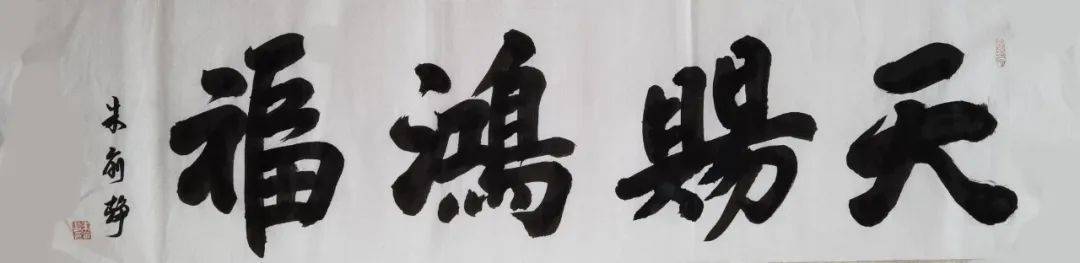 天賜鴻福
朱俞静